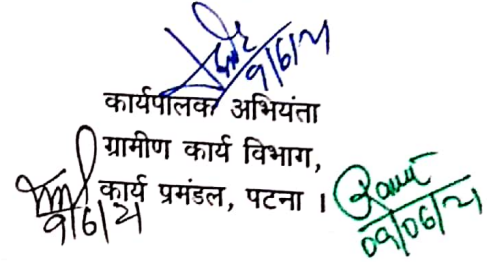 9/6/21
कार्यपालक अभियंता
ग्रामीण कार्य विभाग,
कार्य प्रमंडल, पटना ।
9/6/21
09/06/21